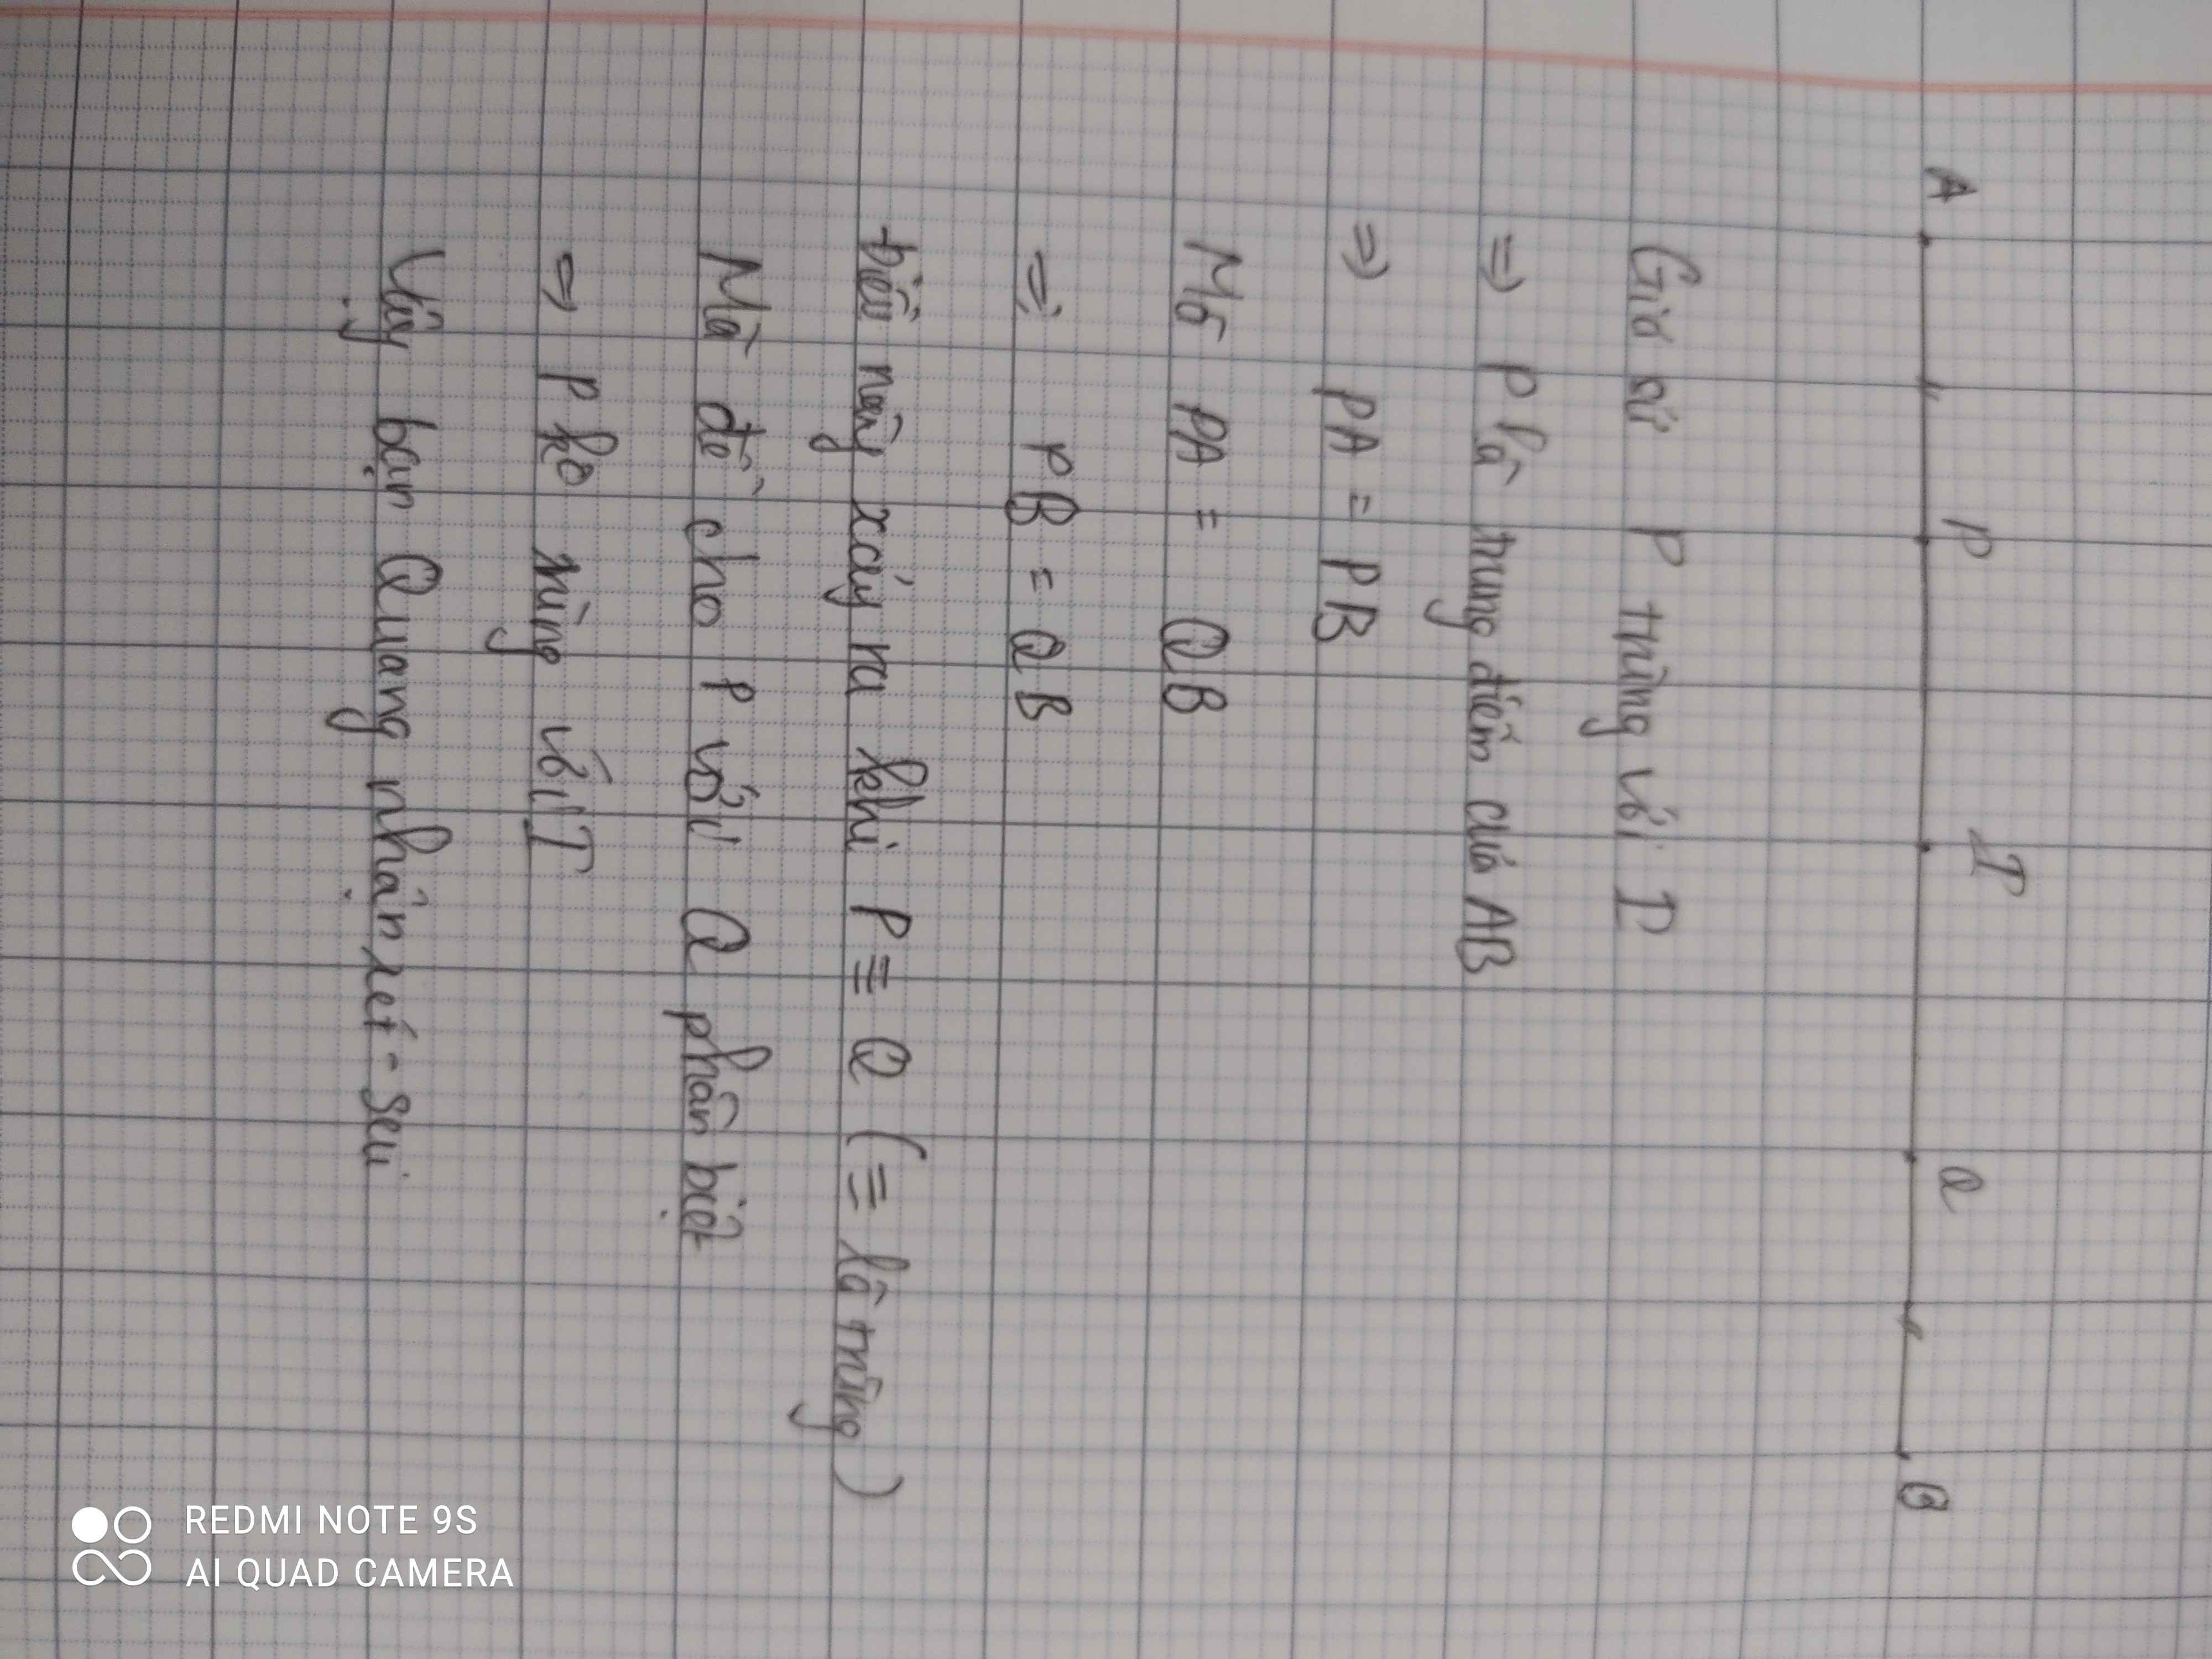 A P I Q B
Giả sử P trùng với I
=> P là trung điểm của AB
=> PA = PB
Mà PA = QB
=> PB = QB
Điều này xảy ra khi P ≡ Q (≡ là trùng)
Mà đề cho P với Q phân biệt
=> P ko trùng với I
Vậy bạn Quang nhận xét sai
REDMI NOTE 9S
AI QUAD CAMERA